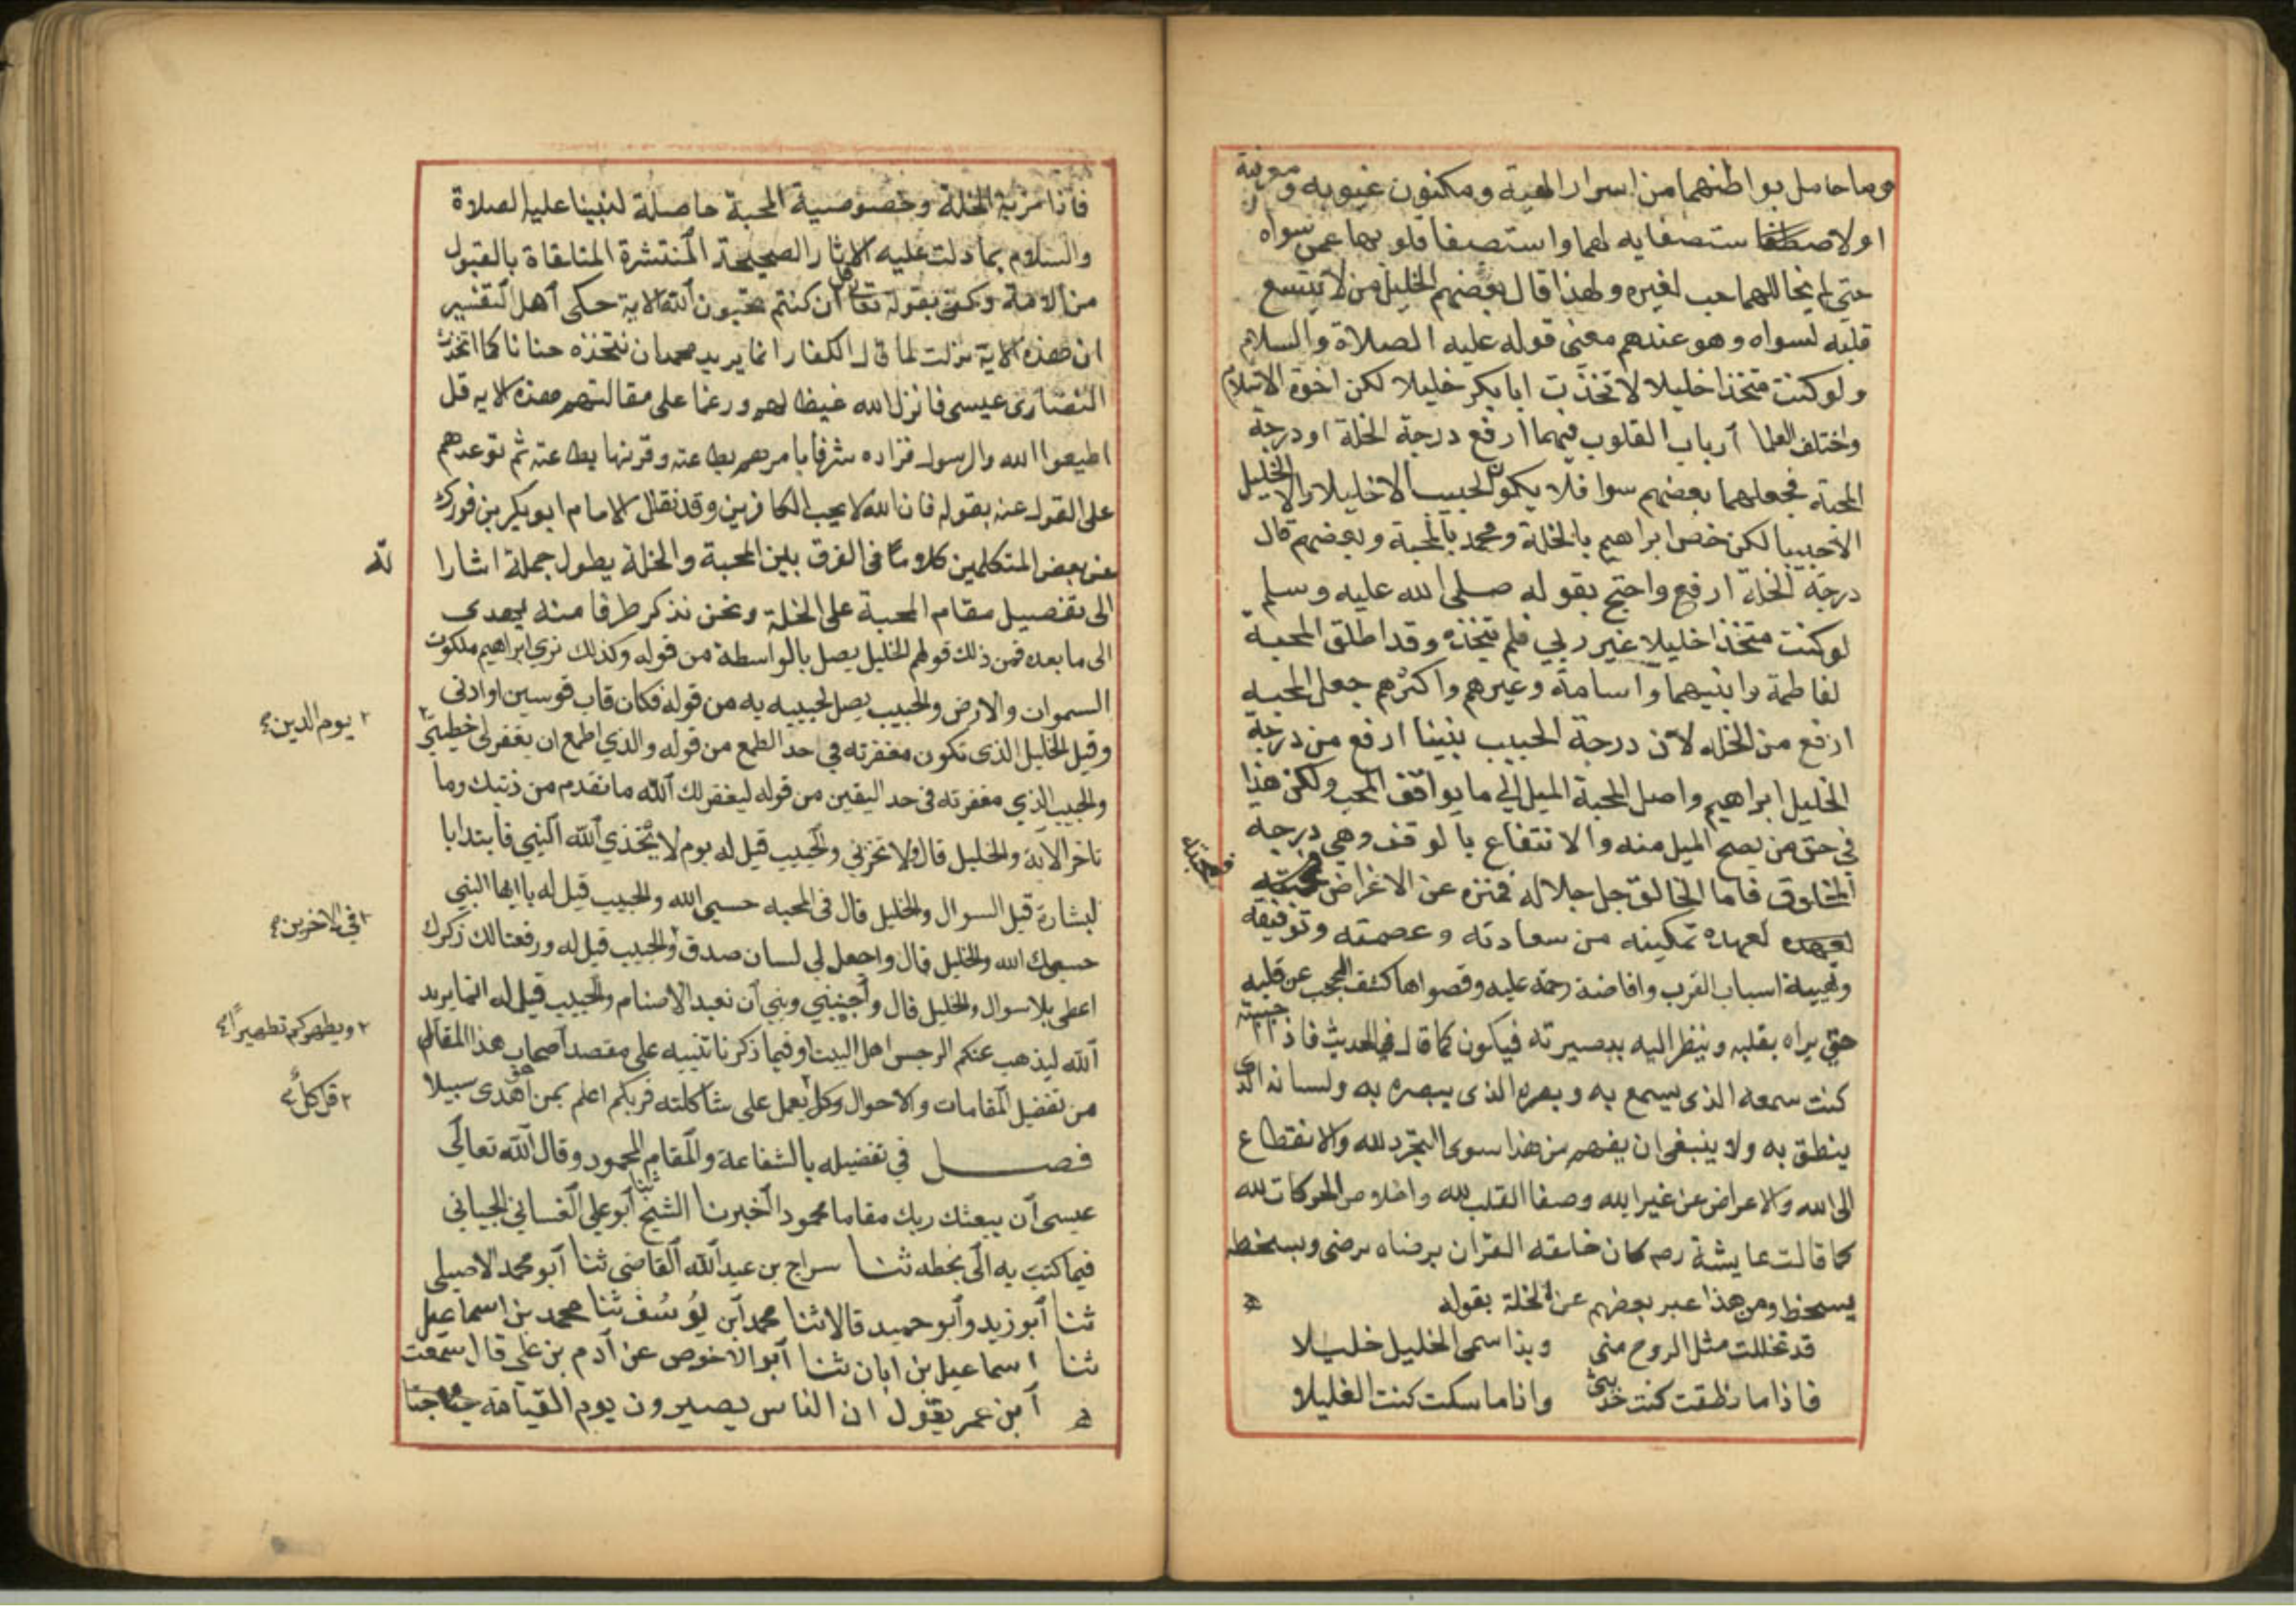 وما حامل بواطنهما من اسرار الهية ومكنون غيوبه ومعرفة
او لاصطفا ستصفايه لهما واستصفا قلوبهما عمن سواه
حتى لم يخاللهما حب لغيره ولهذا قال بعضهم الخليل من لا يتسع
قلبه لسواه وهو عندهم معنى قوله عليه الصلاة والسلام
ولو كنت متخذا خليلا لاتخذت ابا بكر خليلا لكن اخوة الاسلام
واختلف العلما ارباب القلوب فيهما ارفع درجة الخلة او درجة
المحبة فجعلهما بعضهم سوا فلا يكون الحبيب الا خليلا ولا الخليل
الا حبيبا لكن خص ابراهيم بالخلة ومحمد بالمحبة وبعضهم قال
درجة الخلة ارفع واحتج بقوله صلى الله عليه وسلم
لو كنت متخذا خليلا غير ربي فلم يتخذه وقد اطلق المحبة
لفاطمة وابنيهما واسامة وغيرهم واكثرهم جعل المحبة
ارفع من الخله لان درجة الحبيب نبينا ارفع من درجة
الخليل ابراهيم واصل المحبة الميل الى ما يوافق المحب ولكن هذا
في حق من يصح الميل منه والانتفاع بالوقف وهي درجة
المخلوق فاما الخالق جل جلاله فمنزه عن الاغراض
فمحبته
لعبده تمكينه من سعادته وعصمته وتوفيقه
وتهيية اسباب القرب وافاضة رحمة عليه وقصواها كشف الحجب عن قلبه
حتى يراه بقلبه وينظر اليه ببصيرته فيكون كما قال في الحديث فاذا احببته
كنت سمعه الذي يسمع به وبصره الذي يبصره به ولسانه الذي
ينطق به ولا ينبغي ان يفهم من هذا سوى التجرد لله والانقطاع
الى الله والاعراض عن غير الله وصفا القلب لله واخلاص الحركات لله
كما قالت عايشة رصم كان خلقه القران برضاه يرضى وبسخطه
يسخط ومن هذا عبر بعضهم عن الخلة بقوله
قد تخللت مثل الروح منى وبذا سمى الخليل خليلا
فاذا ما نطقت كنت حديثى واذا ما سكت كنت الغليلا
فاذا مزية الخلة وخصوصية المحبة حاصلة لنبينا عليه الصلاة
والسلام بما دلت عليه الاثار الصحيحة المنتشرة المتلقاة بالقبول
من الامة وكفى بقوله تعالى قل ان كنتم تحبون الله الاية حكى اهل التفسير
ان هذه الاية نزلت لما قال الكفار انما يريد محمد ان نتخذه حنانا كما اتخذت
النصارى عيسى فانزل الله غيظا لهم ورغما على مقالتهم هذه الايه قل
اطيعوا الله والرسول فزاده شرفا بامرهم بطاعته وقرنها بطاعته ثم توعدهم
على القول عنه بقوله فان الله لا يحب الكافرين وقد نقال الامام ابو بكر بن فورك
عن بعض المتكلمين كلاما في الفرق بين المحبة والخلة يطول جملة اشارا
لته
الى تفصيل مقام المحبة على الخلة ونحن نذكر طرفا منه يهدى
الى ما بعده فمن ذلك قولهم الخليل يصل بالواسطة من قوله وكذلك نري ابراهيم ملكوت
السموات والارض والحبيب يصل لحبيبه به من قوله فكان قاب قوسين او ادنى
وقيل الخليل الذى تكون مغفرته في حد الطمع من قوله والذي اطمع ان يغفر لي خطيتي ٢
٢ يوم الدين
والحبيب الذي مغفرته في حد اليقين من قوله ليغفر لك الله ما تقدم من ذنبك وما
تاخر الاية والخليل قال ولا تخزني والحبيب قيل له يوم لا يخذي الله النبي فابتدا با
لبشارة قبل السوال والخليل قال في المحبه حسبي الله والحبيب قيل له يا ايها النبي
حسبك الله والخليل قال واجعل لي لسان صدق والحبيب قيل له ورفعنا لك ذكرك
٢ في الاخرين
اعطى بلا سوال والخليل قال واجنبني وبني ان نعبد الاصنام والحبيب قيل له انما يريد
الله ليذهب عنكم الرجس اهل البيت وفيما ذكرنا تنبيه على مقصد اصحاب هذا المقال
٢ ويطهركم تطهيرا
من تفضيل المقامات والاحوال وكل يعمل على شاكلته فربكم اعلم بمن هو اهدى سبيلا
٢ قل كل
فصل في تفضيله بالشفاعة والمقام المحمود وقال الله تعالى
عيسى ان يبعثك ربك مقاما محمودا اخبرنا الشيخ ابو علي الغساني الجياني
فيما كتب به الى بخطه ثنا سراج بن عبد الله القاضى ثنا ابو محمد الاصيلي
ثنا ابو زيد وابو حميد قالا ثنا محمد ابن يوسف ثنا محمد بن اسماعيل
ثنا اسماعيل بن ابان ثنا ابو الاخوص عن ادم بن علي قال سمعت
ابن عمر يقول ان الناس يصيرون يوم القيامة جثا